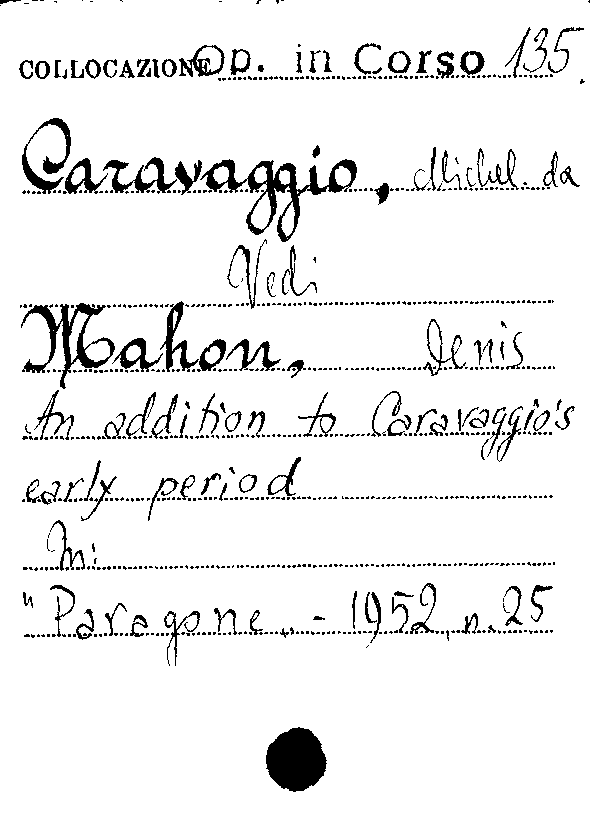 COLLOCAZIONE Op. in Corso 135.
Caravaggio, Michel. da
Vedi
Mahon, Denis
An addition to Caravaggio's
early period
In:
"Paragone„ - 1952, n. 25